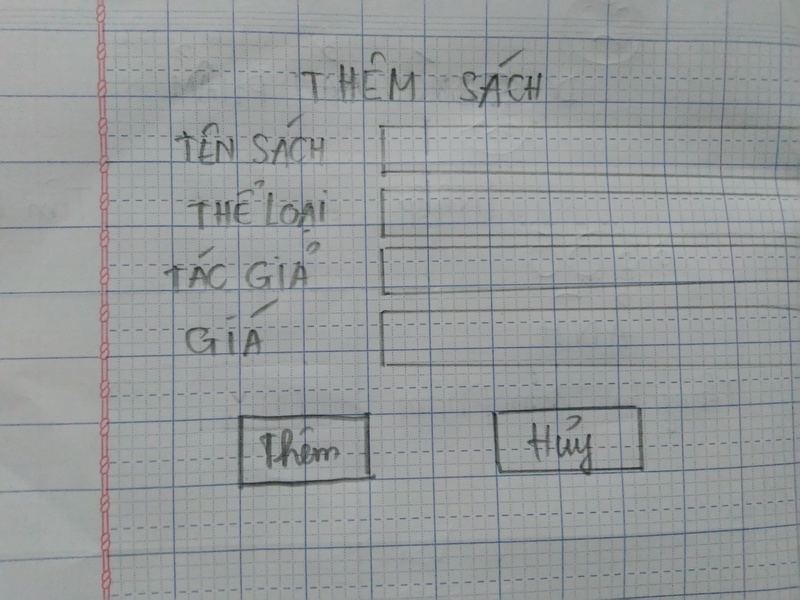 THÊM SÁCH
TÊN SÁCH
THỂ LOẠI
TÁC GIẢ
GIÁ
Thêm Hủy